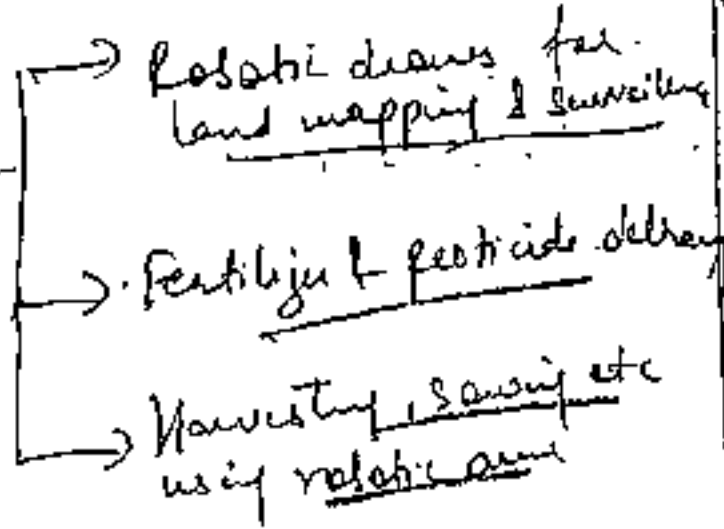 Robotic drones for
land mapping & surveillance
Fertilizer & pesticide delivery
Harvesting, sowing etc
using robotic arms